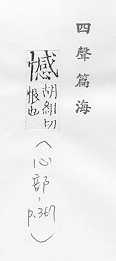 四聲篇海
憾
胡紺切
恨也
(心部,p.367)